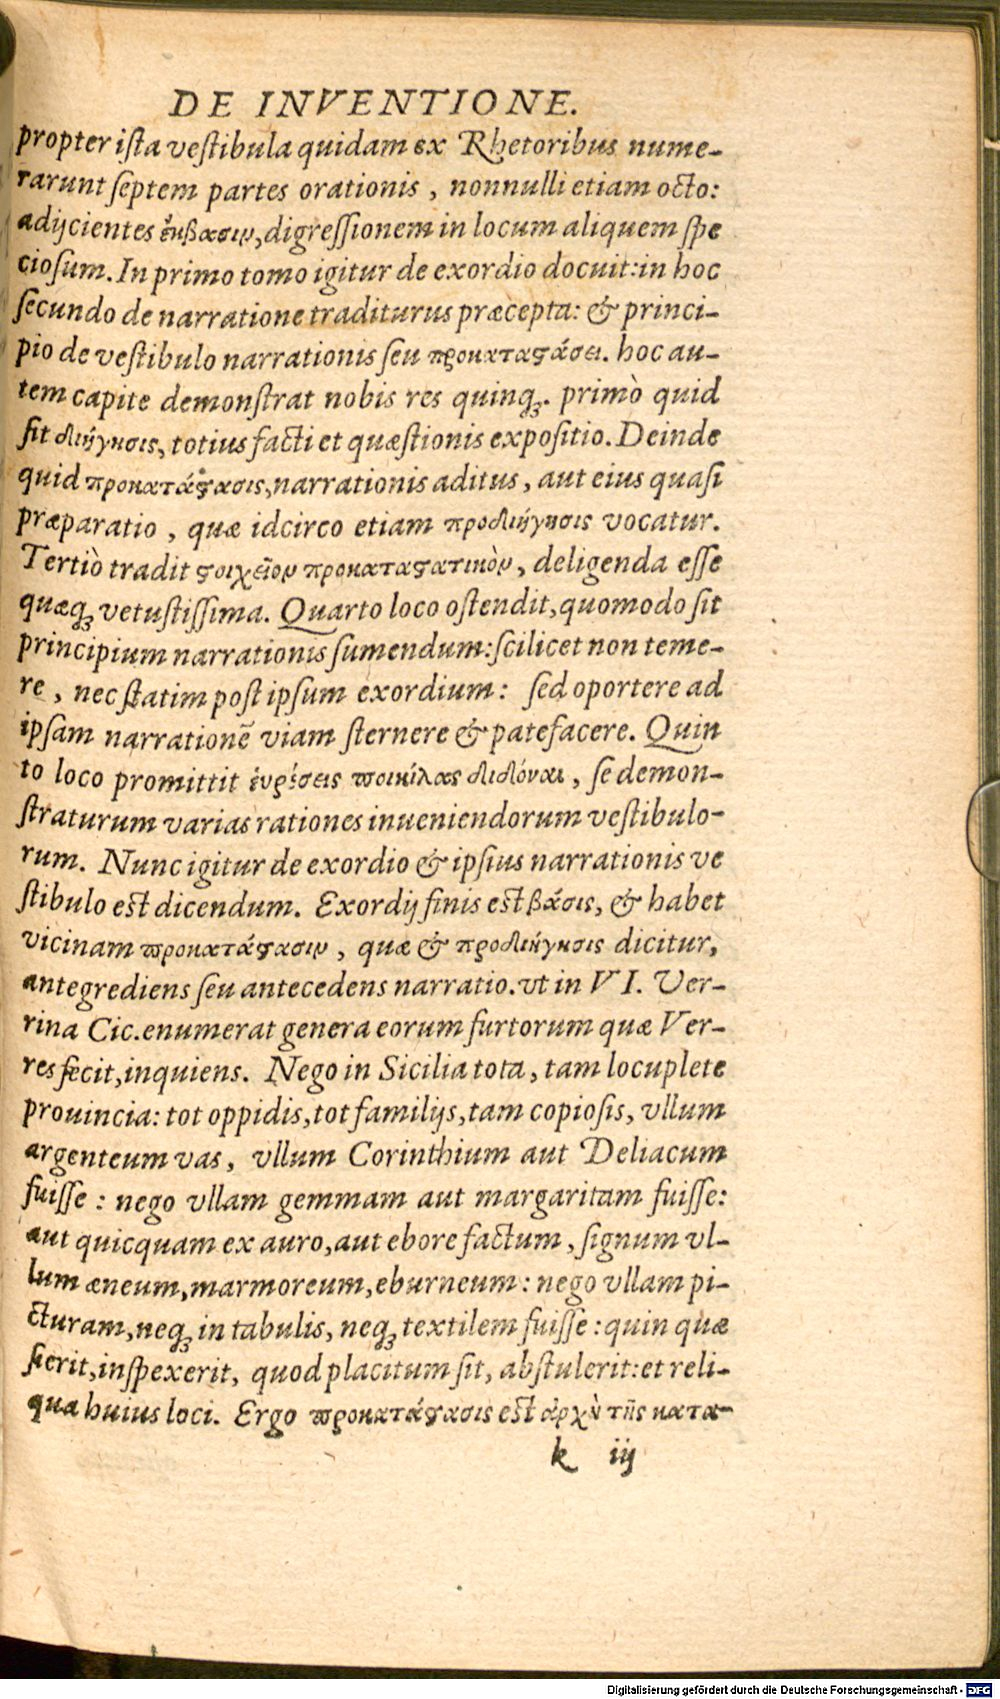 DE INVENTIONE.
propter ista vestibula quidam ex Rhetoribus nume-
rarunt septem partes orationis, nonnulli etiam octo:
adijcientes ἔκβασιν, digressionem in locum aliquem spe
ciosum. In primo tomo igitur de exordio docuit: in hoc
secundo de narratione traditurus præcepta: & princi-
pio de vestibulo narrationis seu προκαταϛάσει. hoc au-
tem capite demonstrat nobis res quinq;. primò quid
sit διήγησις, totius facti et quæstionis expositio. Deinde
quid προκατάϛασις, narrationis aditus, aut eius quasi
præparatio, quæ idcirco etiam προδιήγησις vocatur.
Tertiò tradit ϛοιχεῖον προκαταϛατικὸν, deligenda esse
quæq; vetustissima. Quarto loco ostendit, quomodo sit
principium narrationis sumendum: scilicet non teme-
re, nec statim post ipsum exordium: sed oportere ad
ipsam narrationē viam sternere & patefacere. Quin
to loco promittit εὑρέσεις ποικίλας διδόναι, se demon-
straturum varias rationes inueniendorum vestibulo-
rum. Nunc igitur de exordio & ipsius narrationis ve
stibulo est dicendum. Exordij finis est βάσις, & habet
vicinam προκατάϛασιν, quæ & προδιήγησις dicitur,
antegrediens seu antecedens narratio. vt in VI. Ver-
rina Cic. enumerat genera eorum furtorum quæ Ver-
res fecit, inquiens. Nego in Sicilia tota, tam locuplete
prouincia: tot oppidis, tot familijs, tam copiosis, vllum
argenteum vas, vllum Corinthium aut Deliacum
fuisse: nego vllam gemmam aut margaritam fuisse:
aut quicquam ex auro, aut ebore factum, signum vl-
lum æneum, marmoreum, eburneum: nego vllam pi-
cturam, neq; in tabulis, neq; textilem fuisse: quin quæ
sierit, inspexerit, quod placitum sit, abstulerit: et reli-
qua huius loci. Ergo προκατάϛασις est ἀρχὴ τῆς κατα-
k iij
Digitalisierung gefördert durch die Deutsche Forschungsgemeinschaft - DFG